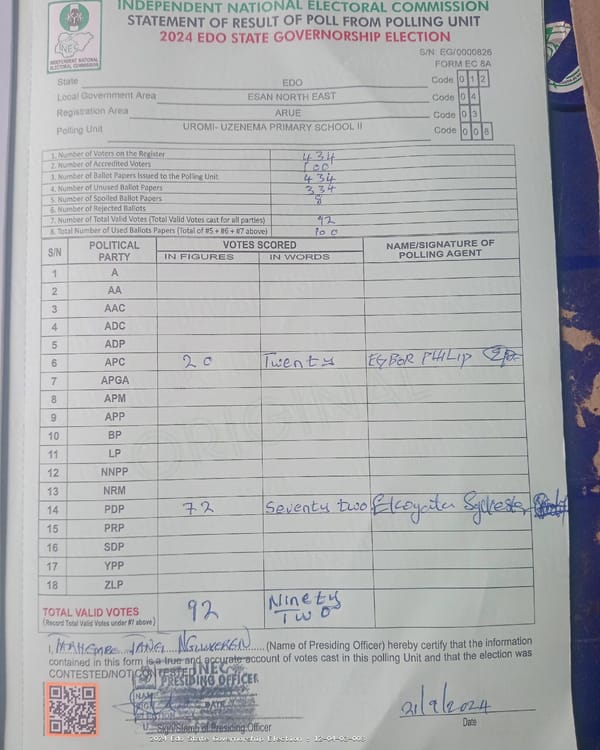 INDEPENDENT NATIONAL ELECTORAL COMMISSION
STATEMENT OF RESULT OF POLL FROM POLLING UNIT
2024 EDO STATE GOVERNORSHIP ELECTION
INEC
INDEPENDENT NATIONAL ELECTORAL COMMISSION
S/N: EG/0000826
FORM EC 8A
State EDO Code 0 1 2
Local Government Area ESAN NORTH EAST Code 0 4
Registration Area ARUE Code 0 3
Polling Unit UROMI- UZENEMA PRIMARY SCHOOL II Code 0 0 8
1. Number of Voters on the Register 434
2. Number of Accredited Voters 100
3. Number of Ballot Papers Issued to the Polling Unit 434
4. Number of Unused Ballot Papers 334
5. Number of Spoiled Ballot Papers 8
6. Number of Rejected Ballots
7. Number of Total Valid Votes (Total Valid Votes cast for all parties) 92
8. Total Number of Used Ballots Papers (Total of #5 + #6 + #7 above) 100
S/N POLITICAL PARTY VOTES SCORED NAME/SIGNATURE OF POLLING AGENT
IN FIGURES IN WORDS
1 A
2 AA
3 AAC
4 ADC
5 ADP
6 APC 20 Twenty EGBOR PHILIP
7 APGA
8 APM
9 APP
10 BP
11 LP
12 NNPP
13 NRM
14 PDP 72 Seventy two
15 PRP
16 SDP
17 YPP
18 ZLP
ORIGINAL
TOTAL VALID VOTES 92 Ninety Two
(Record Total Valid Votes under #7 above)
I, (Name of Presiding Officer) hereby certify that the information
contained in this form is a true and accurate account of votes cast in this polling Unit and that the election was
CONTESTED/NOT CONTESTED
INEC
PRESIDING OFFICER
DATE
Sign/Stamp of Presiding Officer
21/9/2024
Date
2024 Edo State Governorship Election - 12-04-03-008